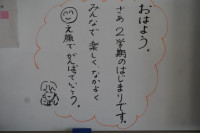 おはよう。
さあ2学期のはじまりです。
みんなで楽しく、なかよく
笑顔でがんばっていこう。